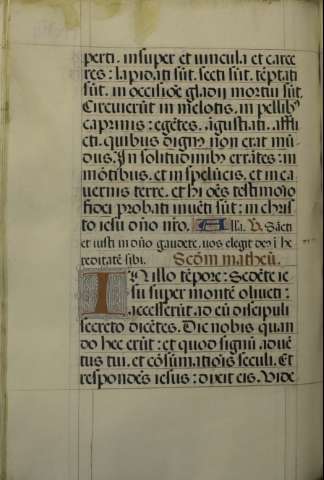 perti. insuper et uincula et carce
res: lapidati sūt. secti sūt. tēptati
sūt. in occisiōe gladii mortui sūt.
Circuierūt in melotis. in pellibꝰ
caprinis: egētes. āgustiati. afflic
ti. quibus dignꝰ non erat mū-
dus. In solitudinibꝰ errātes: in
mōtibus. et in spelūcis. et in ca
uernis terre. et hi oēs testimōio
fidei probati inuēti sūt: in chris
to iesu dño nr̄o. Alła. V. Sācti
et iusti in dño gaudete. uos elegit deꝰ ī he
reditatē sibi. Scđm matheū.
In illo tēpore: Sedēte ie
su super montē oliueti:
accesserūt. ad eū discipuli
secreto dicētes. Dic nobis quan
do hec erūt: et quod signū aduē
tus tui. et cōsūmatiōis seculi. Et
respondēs iesus: dixit eis. Vide